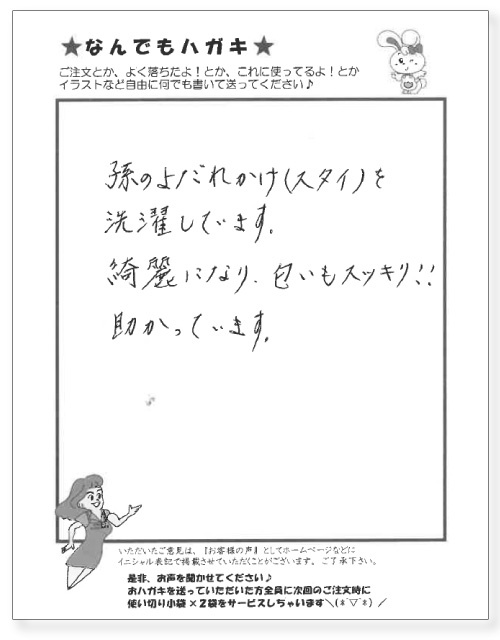 ★なんでもハガキ★
ご注文とか、よく落ちたよ！とか、これに使ってるよ！とか
イラストなど自由に何でも書いて送ってください♪
孫のよだれかけ(スタイ)を
洗濯しています。
綺麗になり、匂いもスッキリ!!
助かっています。
いただいたご意見は、『お客様の声』としてホームページなどに
イニシャル表記で掲載させていただくことがございます。ご了承下さい。
是非、お声を聞かせてください♪
おハガキを送っていただいた方全員に次回のご注文時に
使い切り小袋×２袋をサービスしちゃいます＼(*´▽`*)／